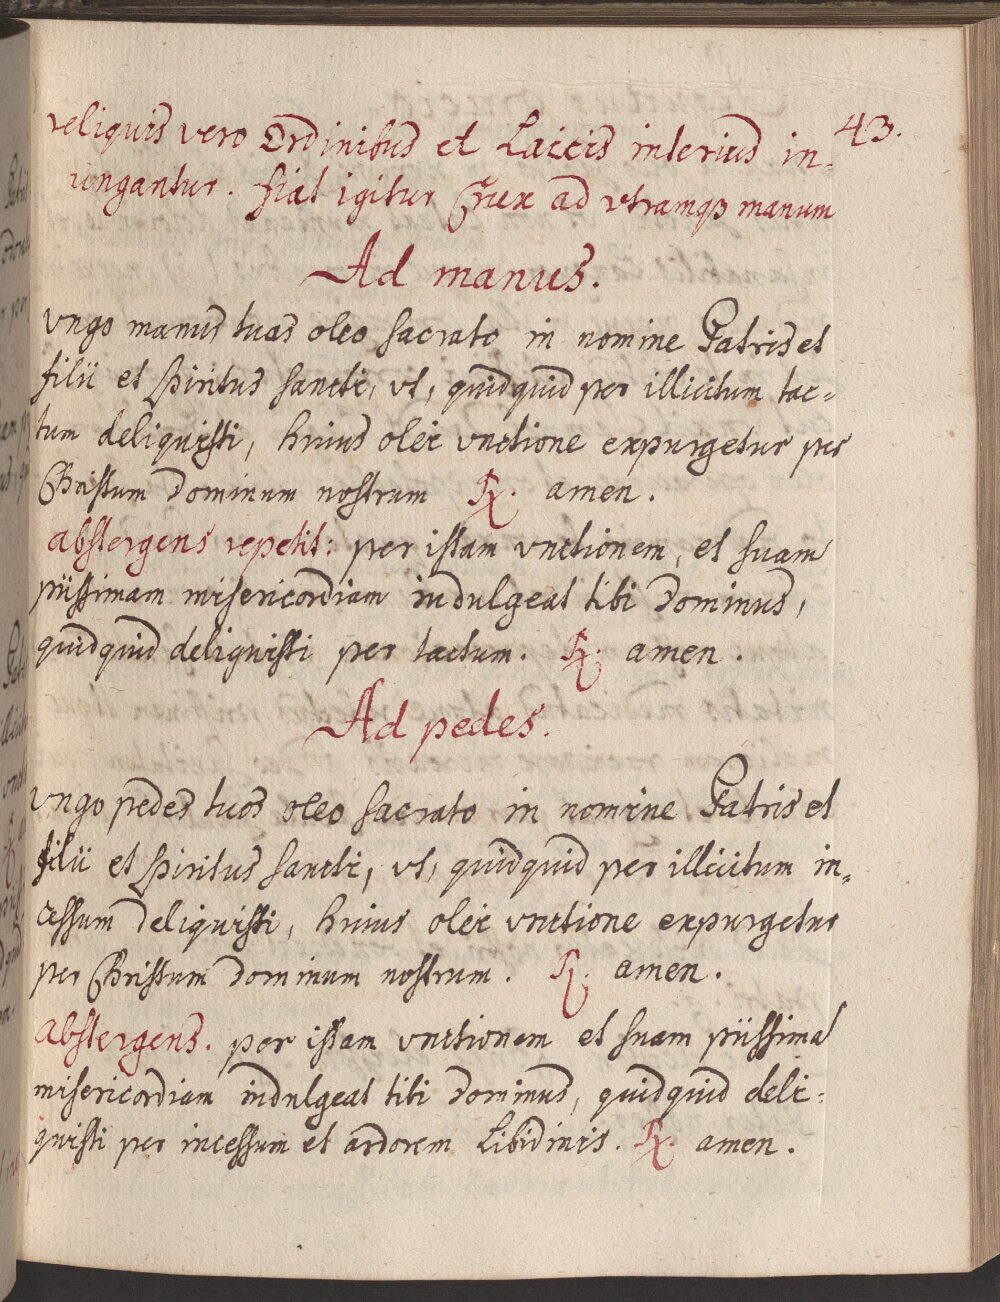 43.
reliquis vero Ordinibus et Laicis interius in-
ungantur. fiat igitur Crux ad vtramqȝ manum
Ad manus.
vngo manus tuas oleo sacrato in nomine Patris et
filii et spiritus sancti, vt, quidquid per illicitum tac-
tum deliquisti, huius olei vnctione expurgetur per
Christum dominum nostrum ℟. amen.
abstergens repetit: per istam vnctionem, et suam
piissimam misericordiam indulgeat tibi dominus,
quidquid deliquisti per tactum. ℟. amen.
Ad pedes.
vngo pedes tuos oleo sacrato in nomine Patris et
filii et spiritus sancti, vt, quidquid per illicitum in-
cessum deliquisti, huius olei vnctione expurgetur
per Christum dominum nostrum. ℟. amen.
abstergens. per istam vnctionem et suam piissimā
misericordiam indulgeat tibi dominus, quidquid deli-
quisti per incessum et ardorem libidinis. ℟. amen.